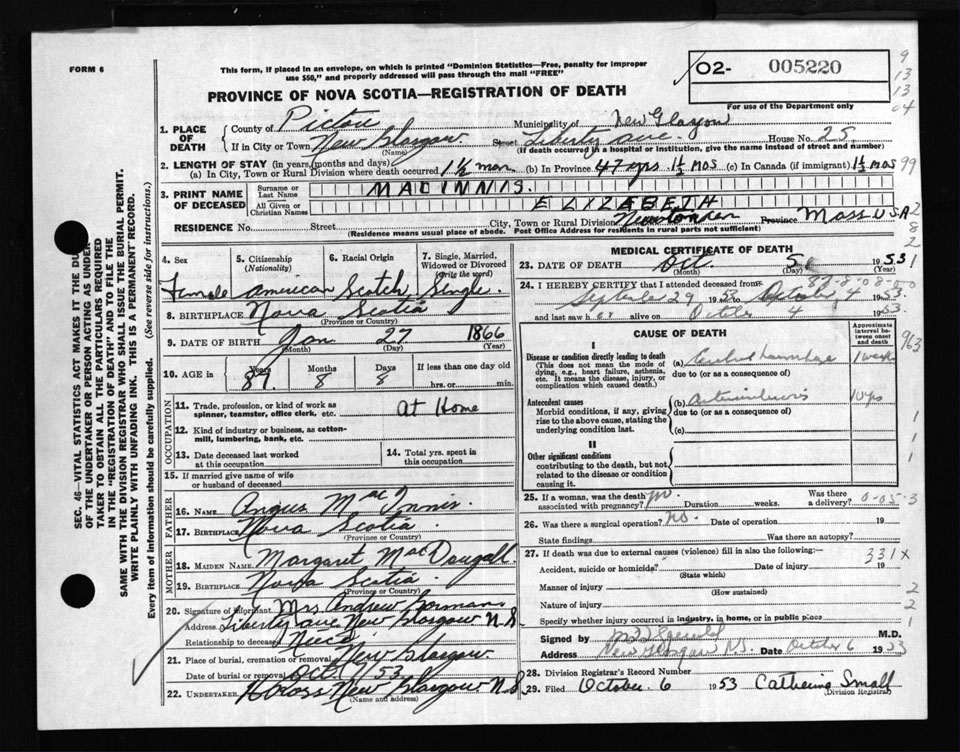 FORM 6
This form, if placed in an envelope, on which is printed "Dominion Statistics—Free, penalty for improper
use $50," and properly addressed will pass through the mail "FREE"
PROVINCE OF NOVA SCOTIA—REGISTRATION OF DEATH
02- 005220
For use of the Department only
9
13
13
04
1. PLACE OF DEATH
County of Pictou Municipality of New Glasgow
If in City or Town New Glasgow. Street Liberty ave. House No. 25
(Name) (If death occurred in a hospital or institution, give the name instead of street and number)
2. LENGTH OF STAY (in years, months and days)
(a) In City, Town or Rural Division where death occurred 1½ mon (b) In Province 47 yrs. 1½ mos (c) In Canada (if immigrant) 1½ mos
99
3. PRINT NAME OF DECEASED
Surname or Last Name MACINNIS.
All Given or Christian Names ELIZABETH
RESIDENCE No. Street City, Town or Rural Division Province Mass USA
(Residence means usual place of abode. Post Office Address for residents in rural parts not sufficient)
2
8
2
4. Sex
Female
5. Citizenship (Nationality)
American
6. Racial Origin
Scotch
7. Single, Married, Widowed or Divorced (write the word)
Single.
8. BIRTHPLACE Nova Scotia
(Province or Country)
9. DATE OF BIRTH Jan 27 1866
(Month) (Day) (Year)
10. AGE in Years 87 Months 8 Days 8 If less than one day old
hrs. or min.
OCCUPATION
11. Trade, profession, or kind of work as
spinner, teamster, office clerk, etc. At Home
12. Kind of industry or business, as cotton-
mill, lumbering, bank, etc.
13. Date deceased last worked
at this occupation
14. Total yrs. spent in
this occupation
15. If married give name of wife
or husband of deceased
FATHER
16. Name Angus MacInnis
17. Birthplace Nova Scotia.
(Province or Country)
MOTHER
18. Maiden Name Margaret MacDougall
19. Birthplace Nova Scotia.
(Province or Country)
20. Signature of informant Mrs. Andrew
Address Liberty ave New Glasgow N.S
Relationship to deceased Niece
21. Place of burial, cremation or removal New Glasgow.
Date of burial or removal Oct 7 53
22. Undertaker New Glasgow N.S
(Name and address)
MEDICAL CERTIFICATE OF DEATH
23. DATE OF DEATH Oct. 5 1953
(Month) (Day) (Year)
1
24. I HEREBY CERTIFY that I attended deceased from
29 1953 to October 4 1953.
and last saw her alive on October 4 1953.
CAUSE OF DEATH
Approximate interval between onset and death
963
I
Disease or condition directly leading to death
(This does not mean the mode of
dying, e.g., heart failure, asthenia,
etc. It means the disease, injury, or
complication which caused death.)
(a) Cerebral hemorrhage 1 week
due to (or as a consequence of)
Antecedent causes
Morbid conditions, if any, giving
rise to the above cause, stating the
underlying condition last.
(b) Arteriosclerosis 10 yrs
due to (or as a consequence of)
(c)
1
1
1
II
Other significant conditions
contributing to the death, but not
related to the disease or condition
causing it.
25. If a woman, was the death
associated with pregnancy? no. Duration weeks. Was there
a delivery? 0-05-3
26. Was there a surgical operation? no. Date of operation 19
State findings Was there an autopsy?
27. If death was due to external causes (violence) fill in also the following:— 331X
Accident, suicide or homicide? Date of injury 19
(State which)
Manner of injury 2
(How sustained)
Nature of injury 2
Specify whether injury occurred in industry, in home, or in public place 1
Signed by M.D.
Address New Glasgow N.S. Date October 6 1953
28. Division Registrar's Record Number
29. Filed October 6 1953 Catherine Small
Division Registrar
SEC. 46—VITAL STATISTICS ACT MAKES IT THE DUTY
OF THE UNDERTAKER OR PERSON ACTING AS UNDER-
TAKER TO OBTAIN ALL THE PARTICULARS REQUIRED
IN THE "REGISTRATION OF DEATH" AND TO FILE THE
SAME WITH THE DIVISION REGISTRAR WHO SHALL ISSUE THE BURIAL PERMIT.
WRITE PLAINLY WITH UNFADING INK. THIS IS A PERMANENT RECORD.
Every item of information should be carefully supplied. (See reverse side for instructions.)